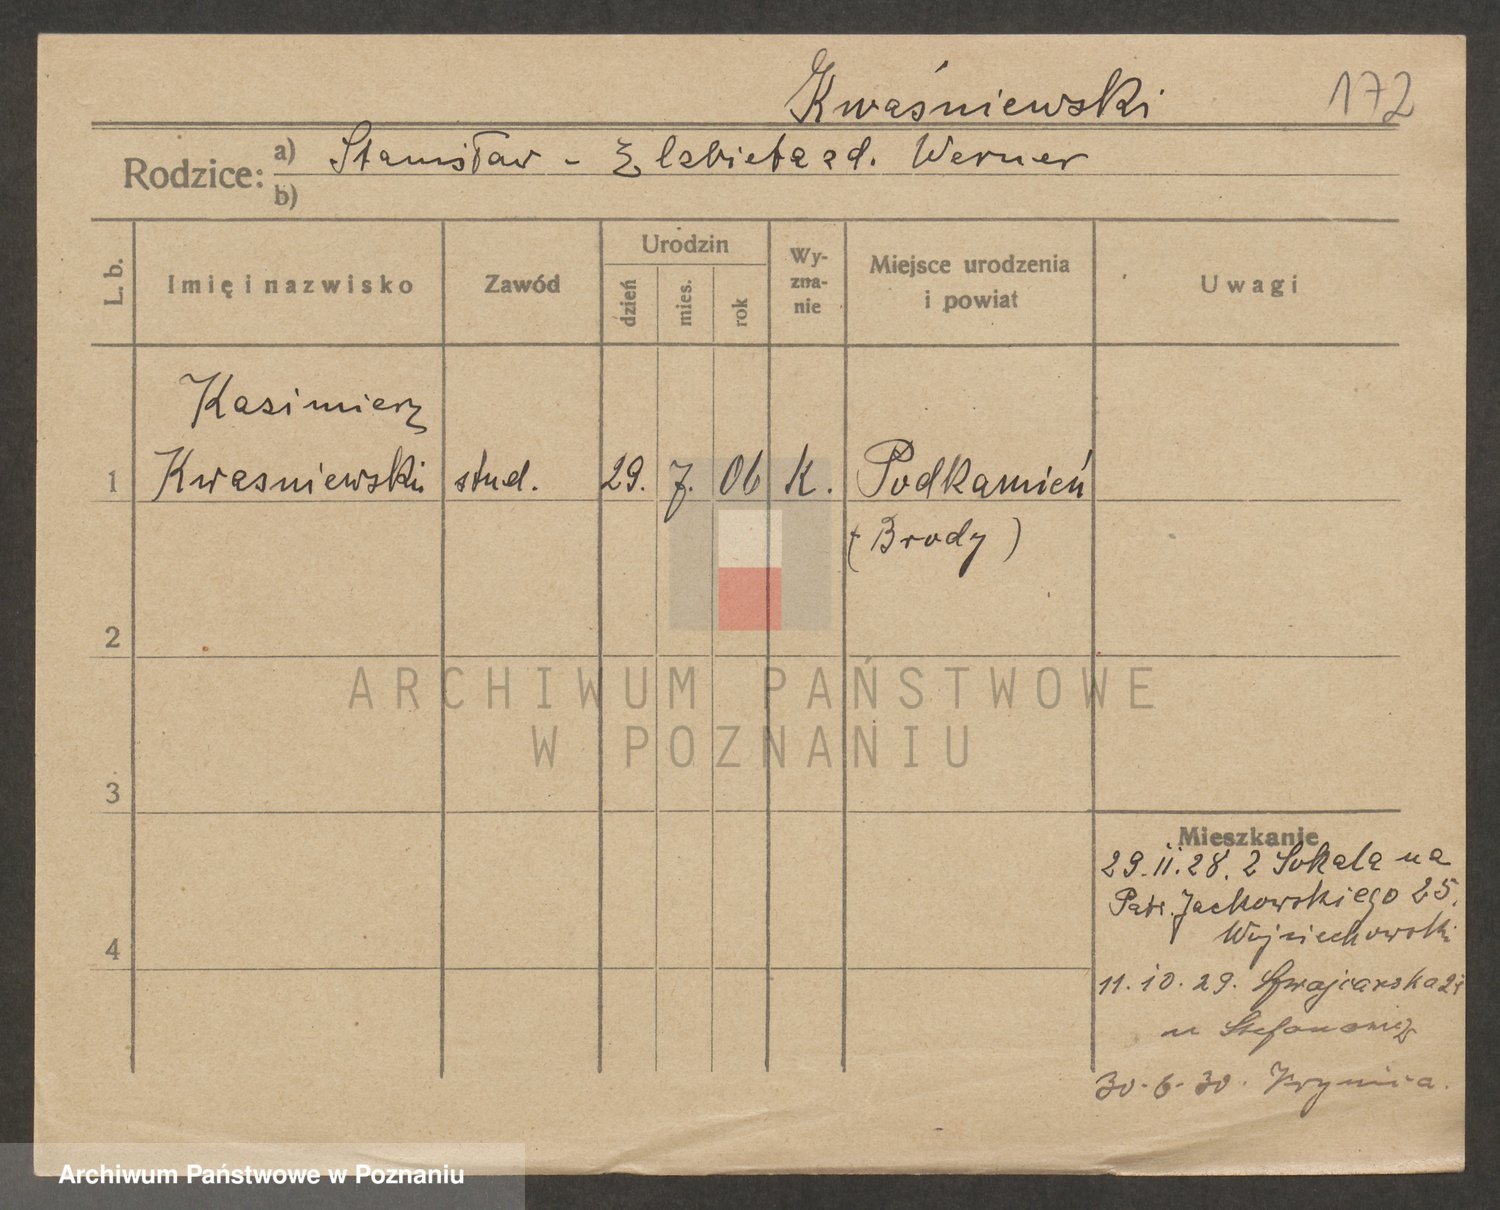 Kwaśniewski
172
Rodzice:
a) Stanisław - Elzbieta zd. Werner
b)
L. b.
Imię i nazwisko
Zawód
Urodzin
dzień
mies.
rok
Wy-
zna-
nie
Miejsce urodzenia
i powiat
Uwagi
Kazimierz
1 Kwasniewski stud. 29. 7. 06 K. Podkamień
(Brody)
2
ARCHIWUM PAŃSTWOWE
W POZNANIU
3
Mieszkanie
29.11.28. z Sokala na
Patr. Jackowskiego 25.
Wojciechowski
4
11.10.29. Szwajcarska
u Stefanowicz
30-6-30. Krynica.
Archiwum Państwowe w Poznaniu